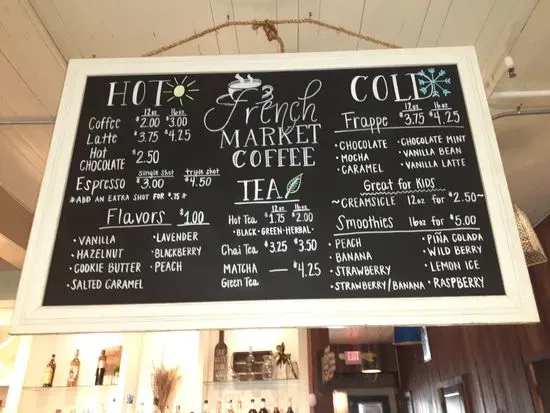 HOT
12oz 16oz
Coffee $2.00 $3.00
Latte $3.75 $4.25
Hot
CHOCOLATE $2.50
single shot triple shot
Espresso $3.00 $4.50
*ADD AN EXTRA SHOT FOR $.75*
Flavors $1.00
• VANILLA
• HAZELNUT
• COOKIE BUTTER
• SALTED CARAMEL
• LAVENDER
• BLACKBERRY
• PEACH
French
MARKET
COFFEE
TEA
12oz 16oz
Hot Tea $1.75 $2.00
•BLACK•GREEN•HERBAL•
Chai Tea $3.25 $3.50
MATCHA — $4.25
Green Tea
COLD
12oz 16oz
Frappe $3.75 $4.25
• CHOCOLATE
• MOCHA
• CARAMEL
• CHOCOLATE MINT
• VANILLA BEAN
• VANILLA LATTE
Great for KIDS
~CREAMSICLE 12oz for $2.50~
Smoothies 16oz for $5.00
• PEACH
• BANANA
• STRAWBERRY
• STRAWBERRY/BANANA
• PIÑA COLADA
• WILD BERRY
• LEMON ICE
• RASPBERRY
EXIT